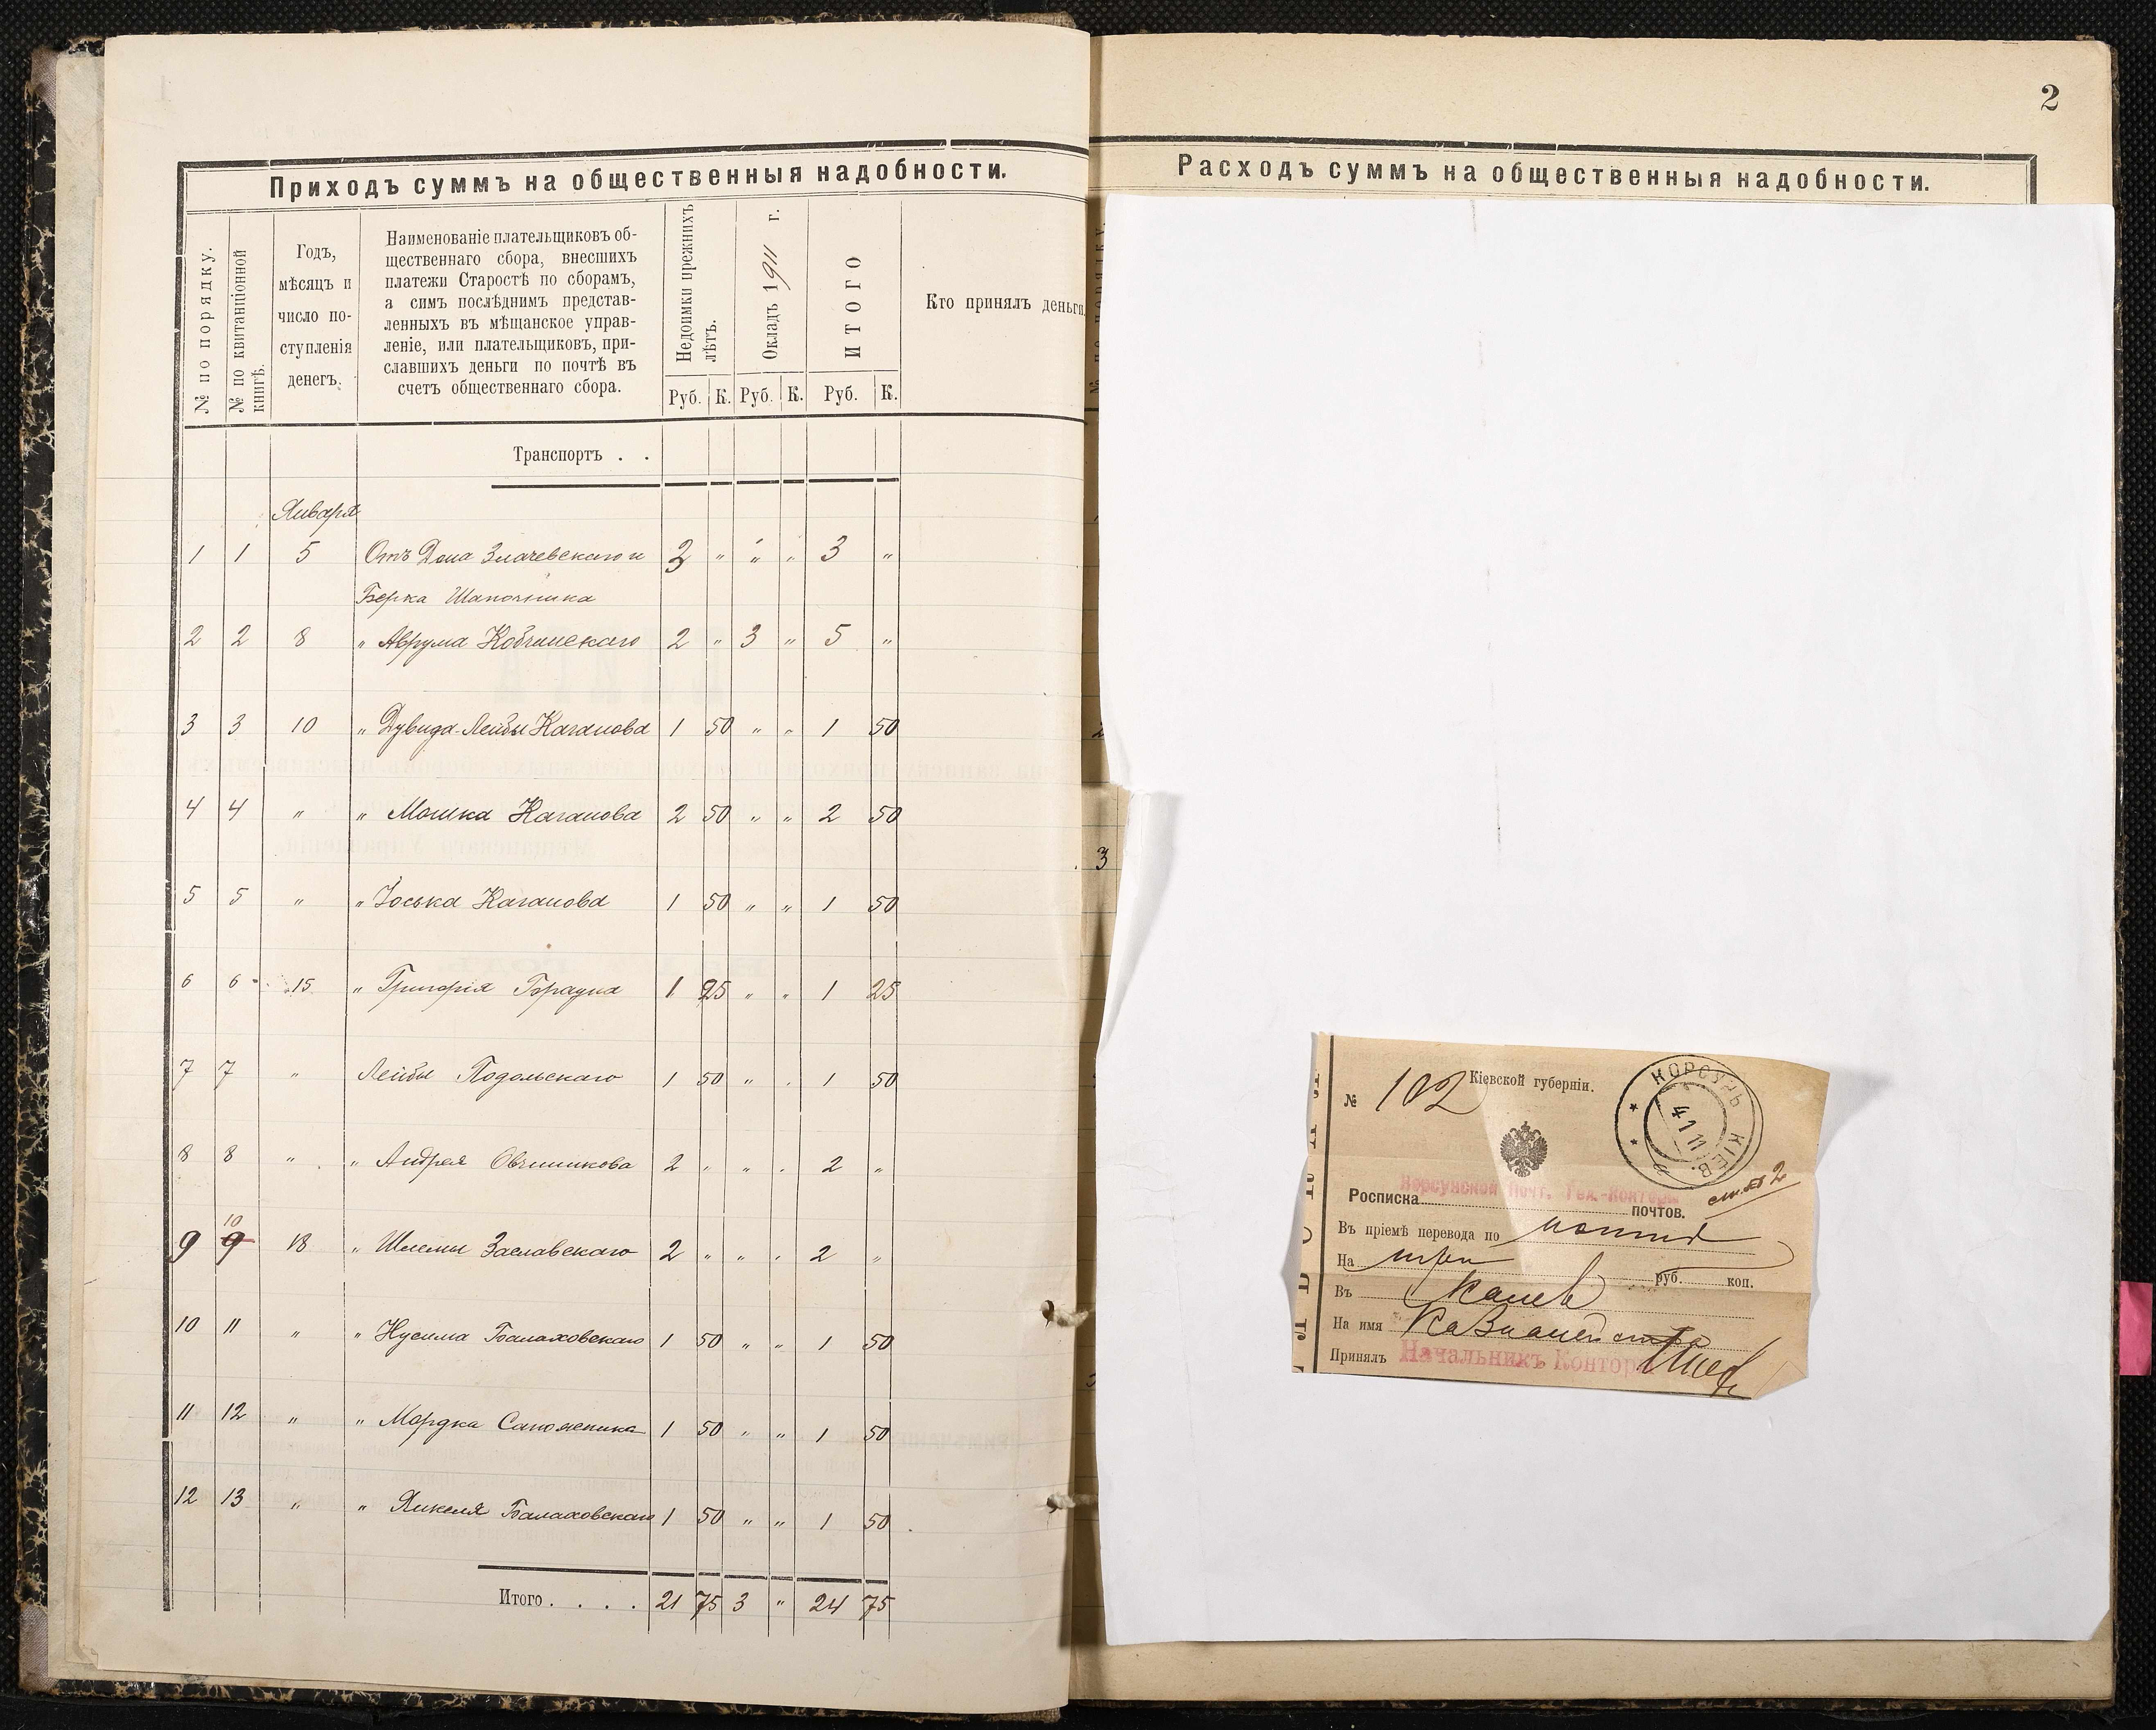 2
Приходъ суммъ на общественныя надобности.
№ по порядку.
№ по квитанціонной книгѣ.
Годъ,
мѣсяцъ и
число по-
ступленія
денегъ.
Наименованіе плательщиковъ об-
щественнаго сбора, внесшихъ
платежи Старостѣ по сборамъ,
а симъ послѣднимъ представ-
ленныхъ въ мѣщанское управ-
леніе, или плательщиковъ, при-
славшихъ деньги по почтѣ въ
счетъ общественнаго сбора.
Недоимки прежнихъ лѣтъ.
Окладъ 1911 г.
ИТОГО
Кто принялъ деньги.
Руб. К. Руб. К. Руб. К.
Транспортъ . .
Января
1 1 5 Отъ Злачевскаго и 3 " " " 3 "
Берка Шапочника
2 2 8 " Аврума 2 " 3 " 5 "
3 3 10 " Дувида-Лейбы Каганова 1 50 " " 1 50
4 4 " " Мошка Каганова 2 50 " " 2 50
5 5 " " Іоська Каганова 1 50 " " 1 50
6 6 15 " Григорія 1 25 " " 1 25
7 7 " Лейбы Подольскаго 1 50 " " 1 50
8 8 " " Андрея Овчинникова 2 " " " 2 "
9 10 18 " Шлемы Заславскаго 2 " " " 2 "
10 11 " " Нусима Балаховскаго 1 50 " " 1 50
11 12 " " Мордка Сапожника 1 50 " " 1 50
12 13 " " Янкеля Балаховскаго 1 50 " " 1 50
Итого . . . . 21 75 3 " 24 75
Расходъ суммъ на общественныя надобности.
3
№ 102 Кіевской губерніи.
КОРСУНЬ КІЕВ.
4 1 11
Корсунской Почт. Тел. Конторы
Росписка
почтов.
ст. 2
Въ пріемѣ перевода по почтѣ
На три руб. коп.
Въ Канев
На имя Казначейства
Принялъ Начальникъ Конторы